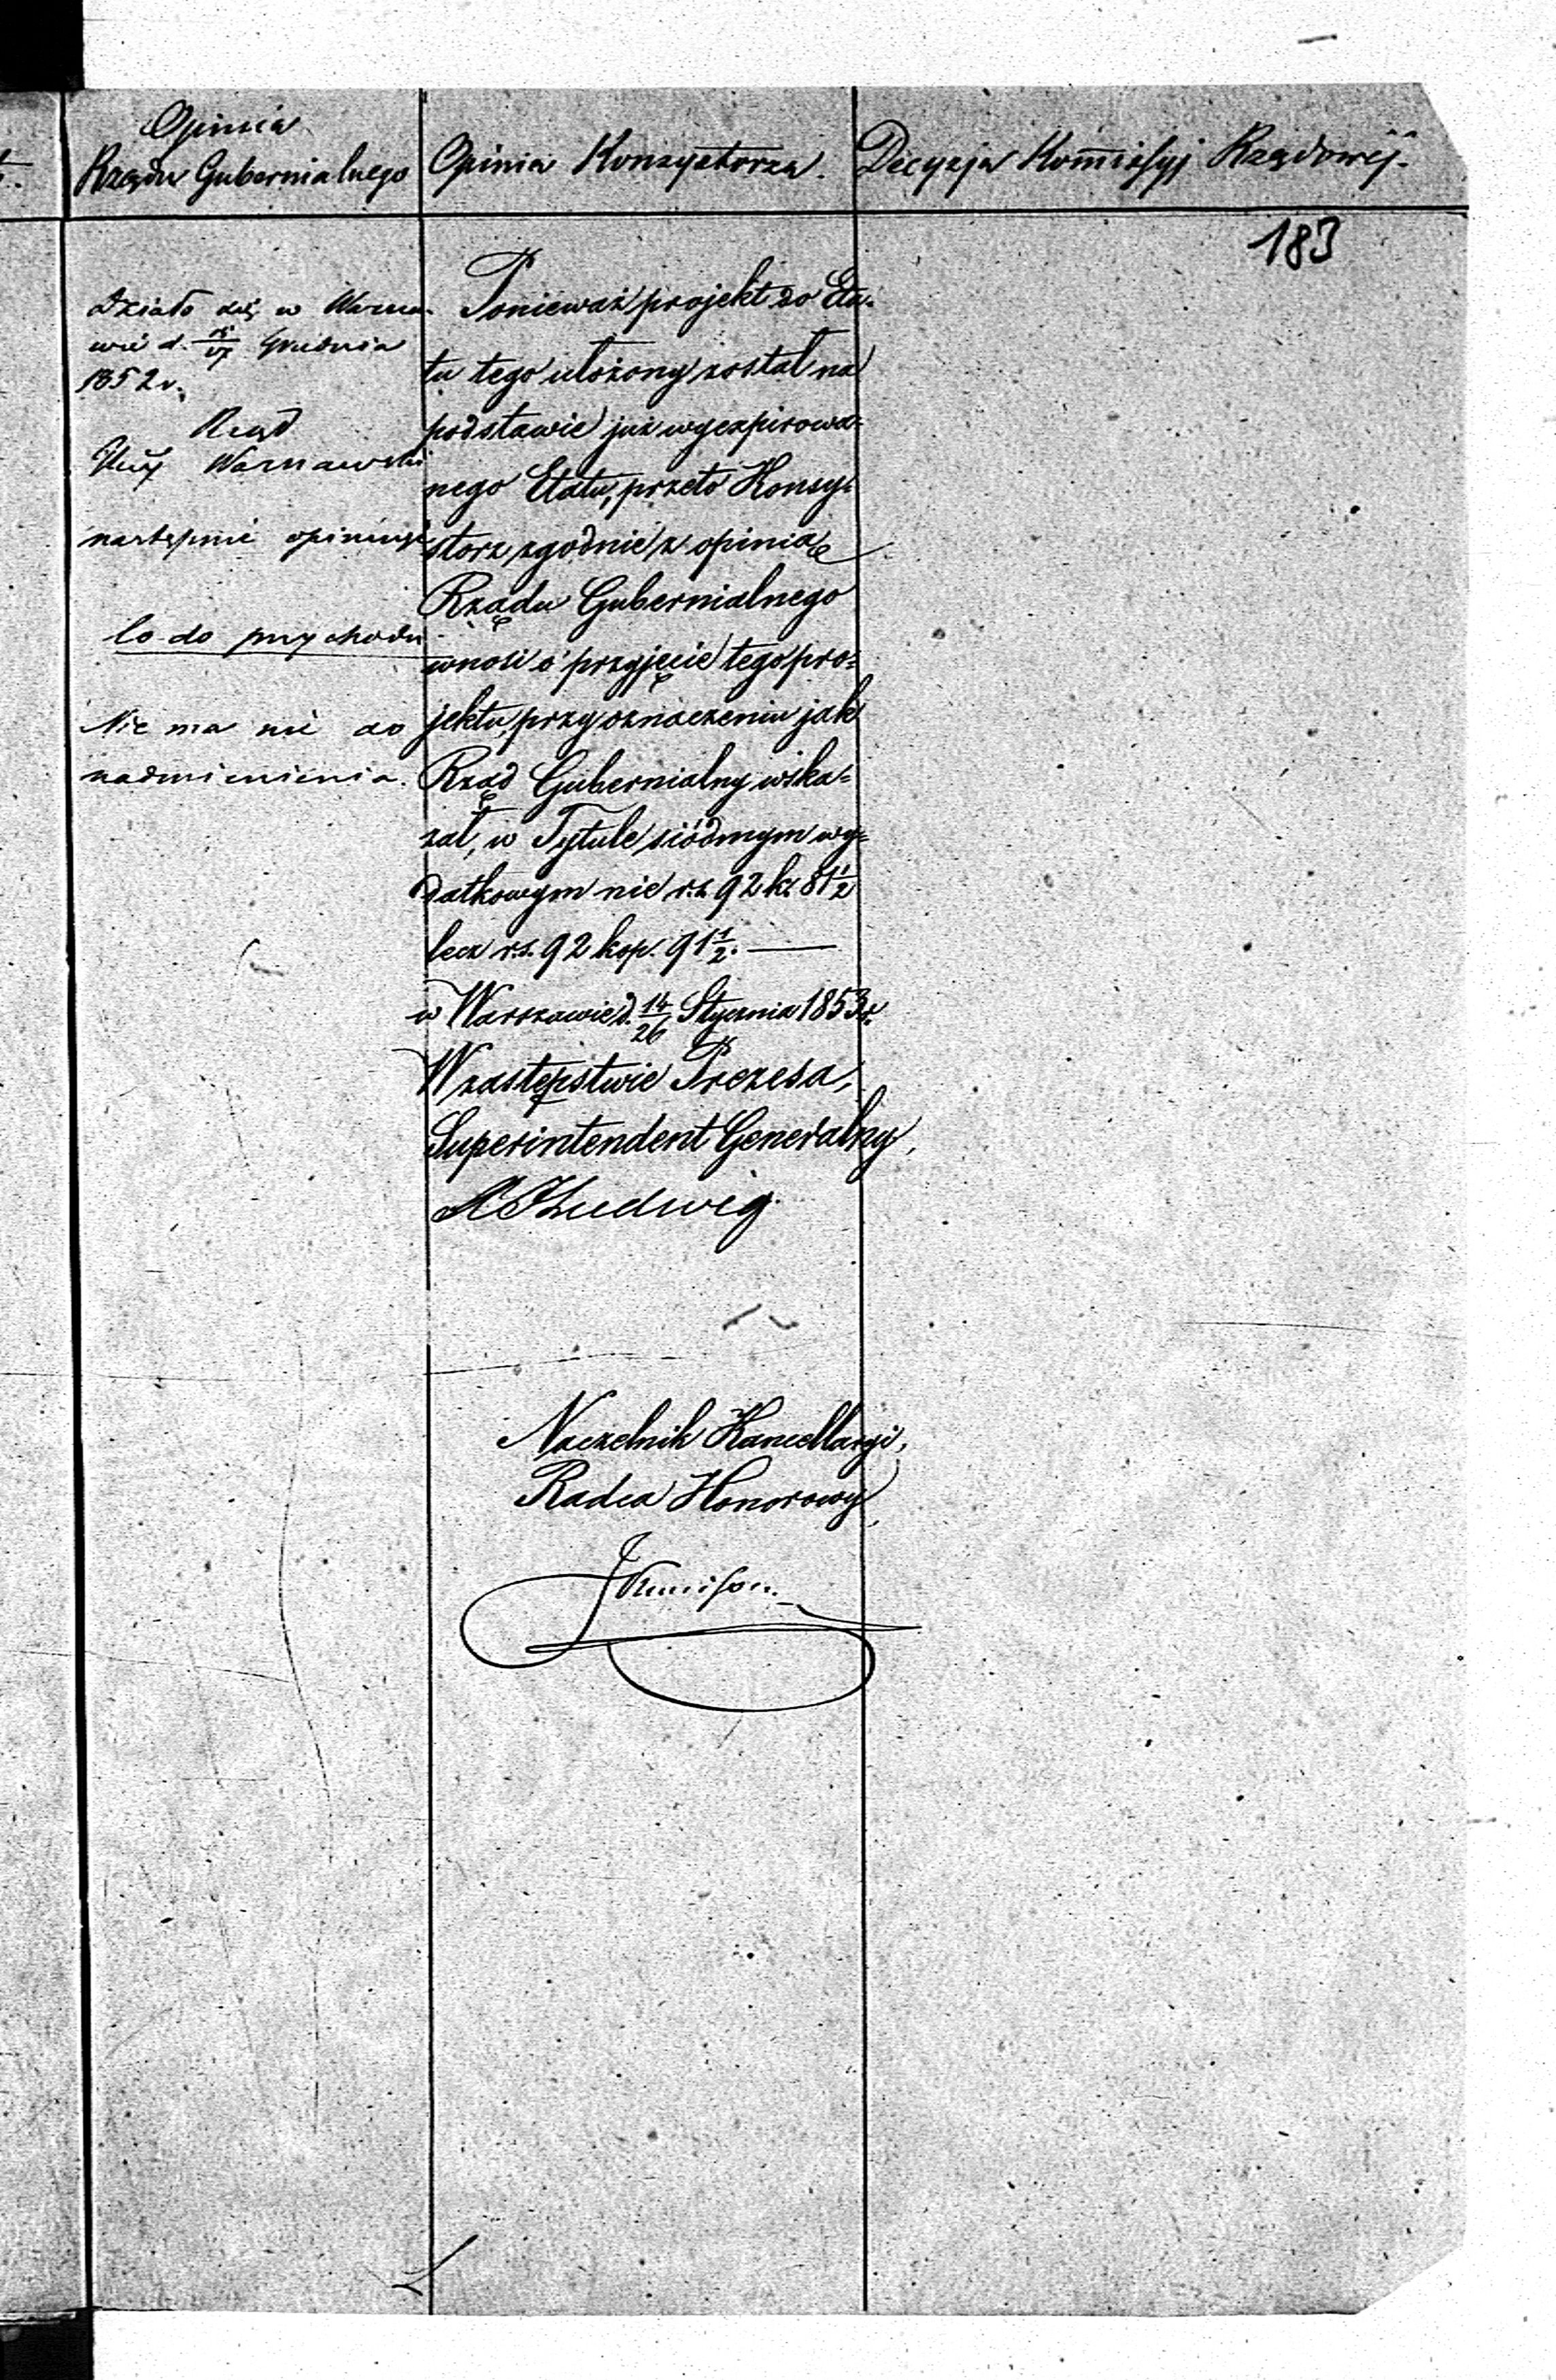 Opinia
Rządu Gubernialnego
Opinia Konsystorza.
Decyzja Kommissyj Rządowéj.
183
Działo się w Warsza-
wie d. Grudnia
1852 r.
Rząd
Gub Warszawski
następnie opiniuje
Co do przychodu
Nie ma nic do
nadmienienia.
Ponieważ projekt do Eta-
tu tego ułożony został na
podstawie już wyexpirowa-
nego Etatu, przeto Konsy-
storz zgodnie z opinią
Rządu Gubernialnego
wnosi o przyjęcie tego pro-
jektu, przy oznaczeniu jak
Rząd Gubernialny wska-
zał, w Tytule siódmym wy-
datkowym nie r.s. 92 k. 81½
lecz r.s. 92 kop. 91½.
w Warszawie d. 14/26 Stycznia 1853 r.
W zastępstwie Prezesa,
Superintendent Generalny,
Ludwig
Naczelnik Kancellaryi,
Radca Honorowy